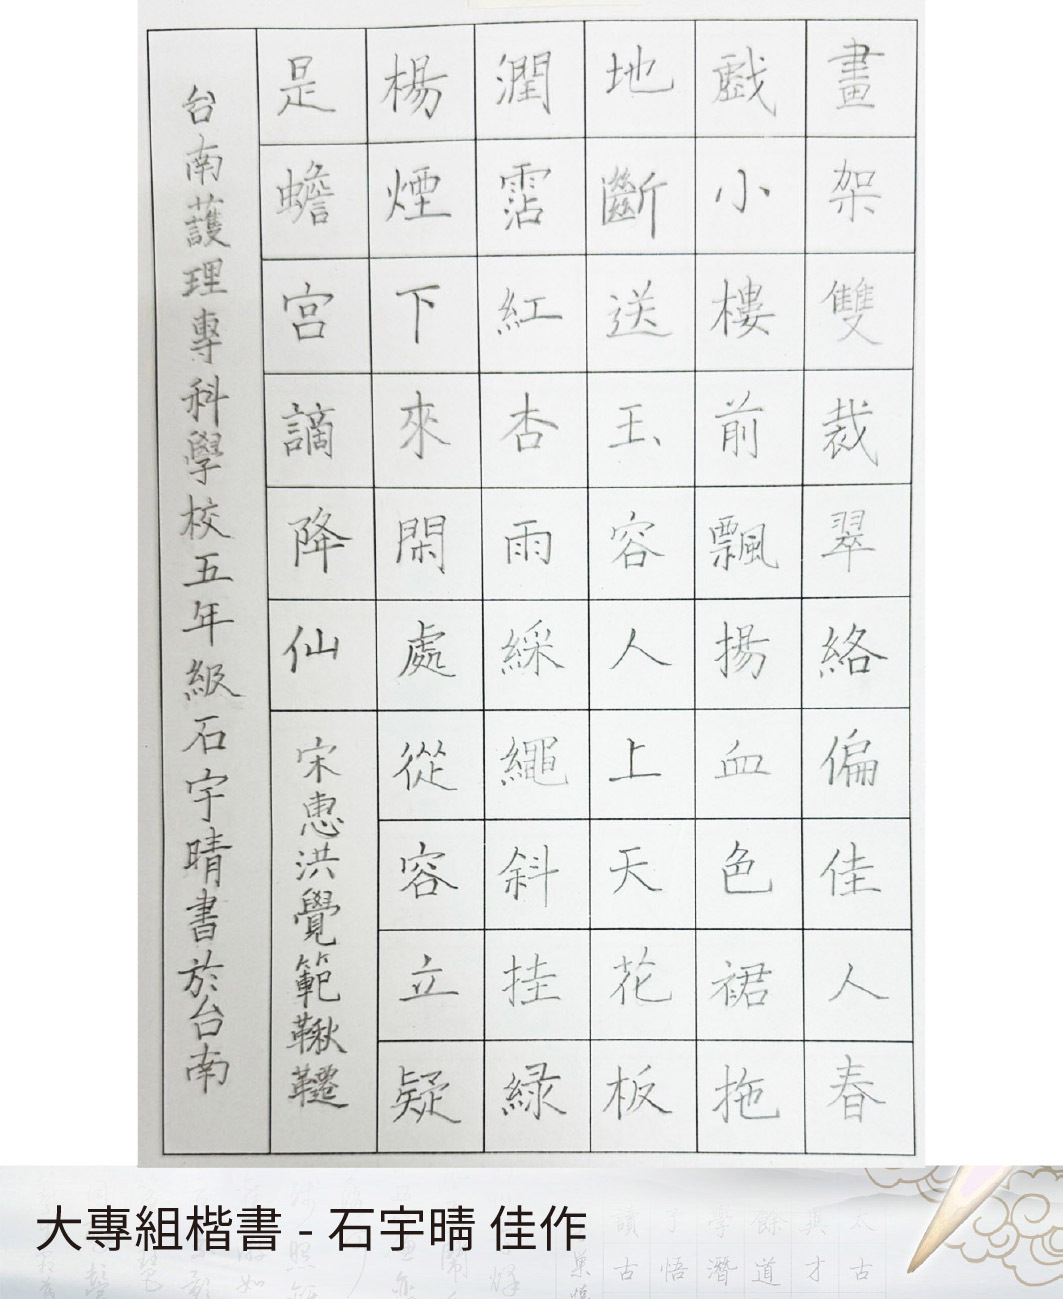 畫架雙裁翠絡偏佳人春
戲小樓前飄揚血色裙拖
地斷送玉容人上天花板
潤霑紅杏雨綵繩斜挂緑
楊煙下來閑處從容立疑
是蟾宫謫降仙
宋惠洪覺範鞦韆
台南護理專科學校五年級石宇晴書於台南
大專組楷書 - 石宇晴 佳作